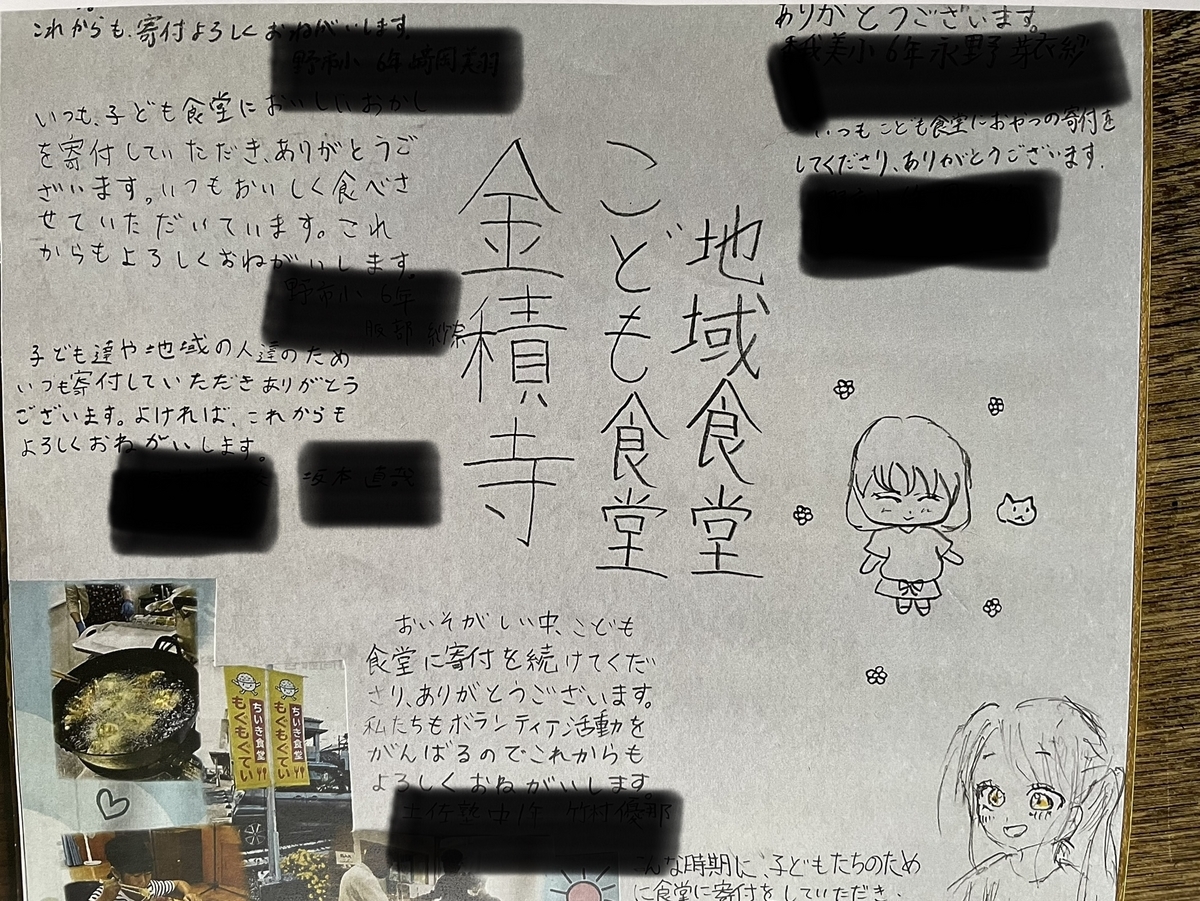 これからも、寄付よろしくおねがいします。
いつも、子ども食堂においしいおかし
を寄付していただき、ありがとうご
ざいます。いつもおいしく食べさ
せていただいています。これ
からもよろしくおねがいします。
子ども達や地域の人達のため
いつも寄付していただきありがとう
ございます。よければ、これからも
よろしくおねがいします。
ありがとうございます。
いつもこども食堂におやつの寄付を
してくださり、ありがとうございます。
地域食堂
こども食堂
金積寺
ちいき食堂
もぐもぐてい
ちいき食堂
もぐもぐてい
おいそがしい中、こども
食堂に寄付を続けてくだ
さり、ありがとうございます。
私たちもボランティア活動を
がんばるのでこれからも
よろしくおねがいします。
こんな時期に、子どもたちのため
に食堂に寄付をしていただき、